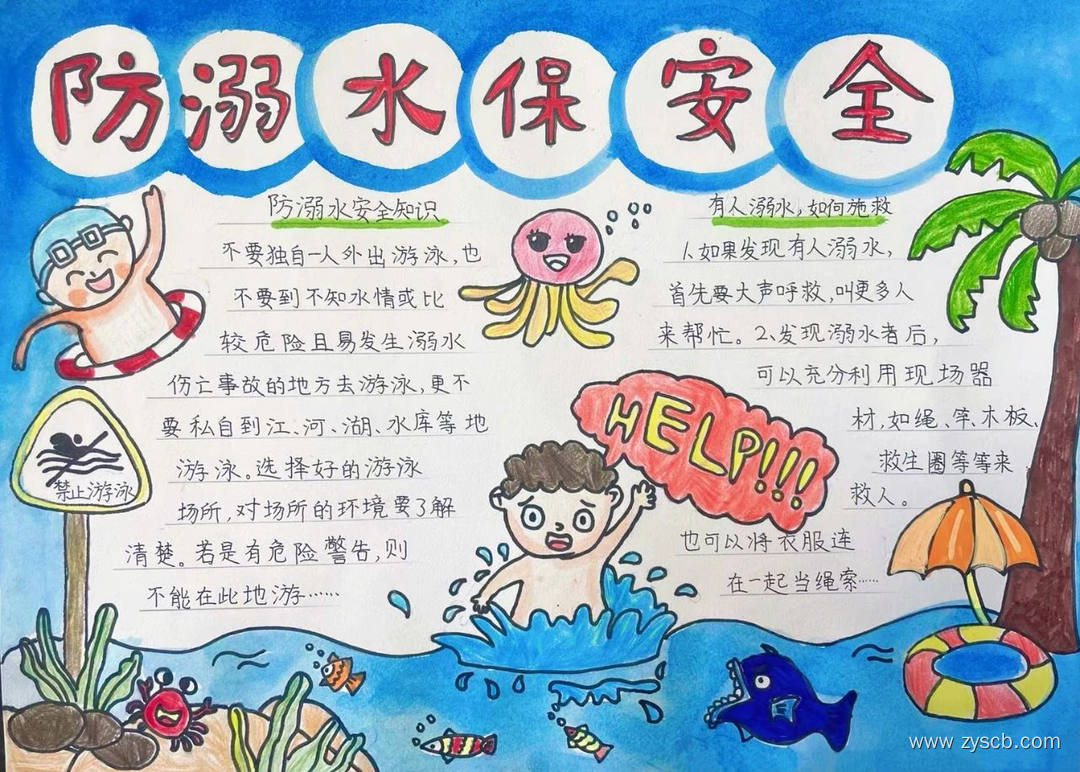 防溺水保安全
防溺水安全知识
不要独自一人外出游泳,也
不要到不知水情或比
较危险且易发生溺水
伤亡事故的地方去游泳,更不
要私自到江、河、湖、水库等地
游泳。选择好的游泳
场所,对场所的环境要了解
清楚。若是有危险警告,则
不能在此地游……
有人溺水,如何施救
1.如果发现有人溺水,
首先要大声呼救,叫更多人
来帮忙。2.发现溺水者后,
可以充分利用现场器
材,如绳、竿、木板、
救生圈等等来
救人。
也可以将衣服连
在一起当绳索……
禁止游泳
HELP!!!
www.zyscb.com